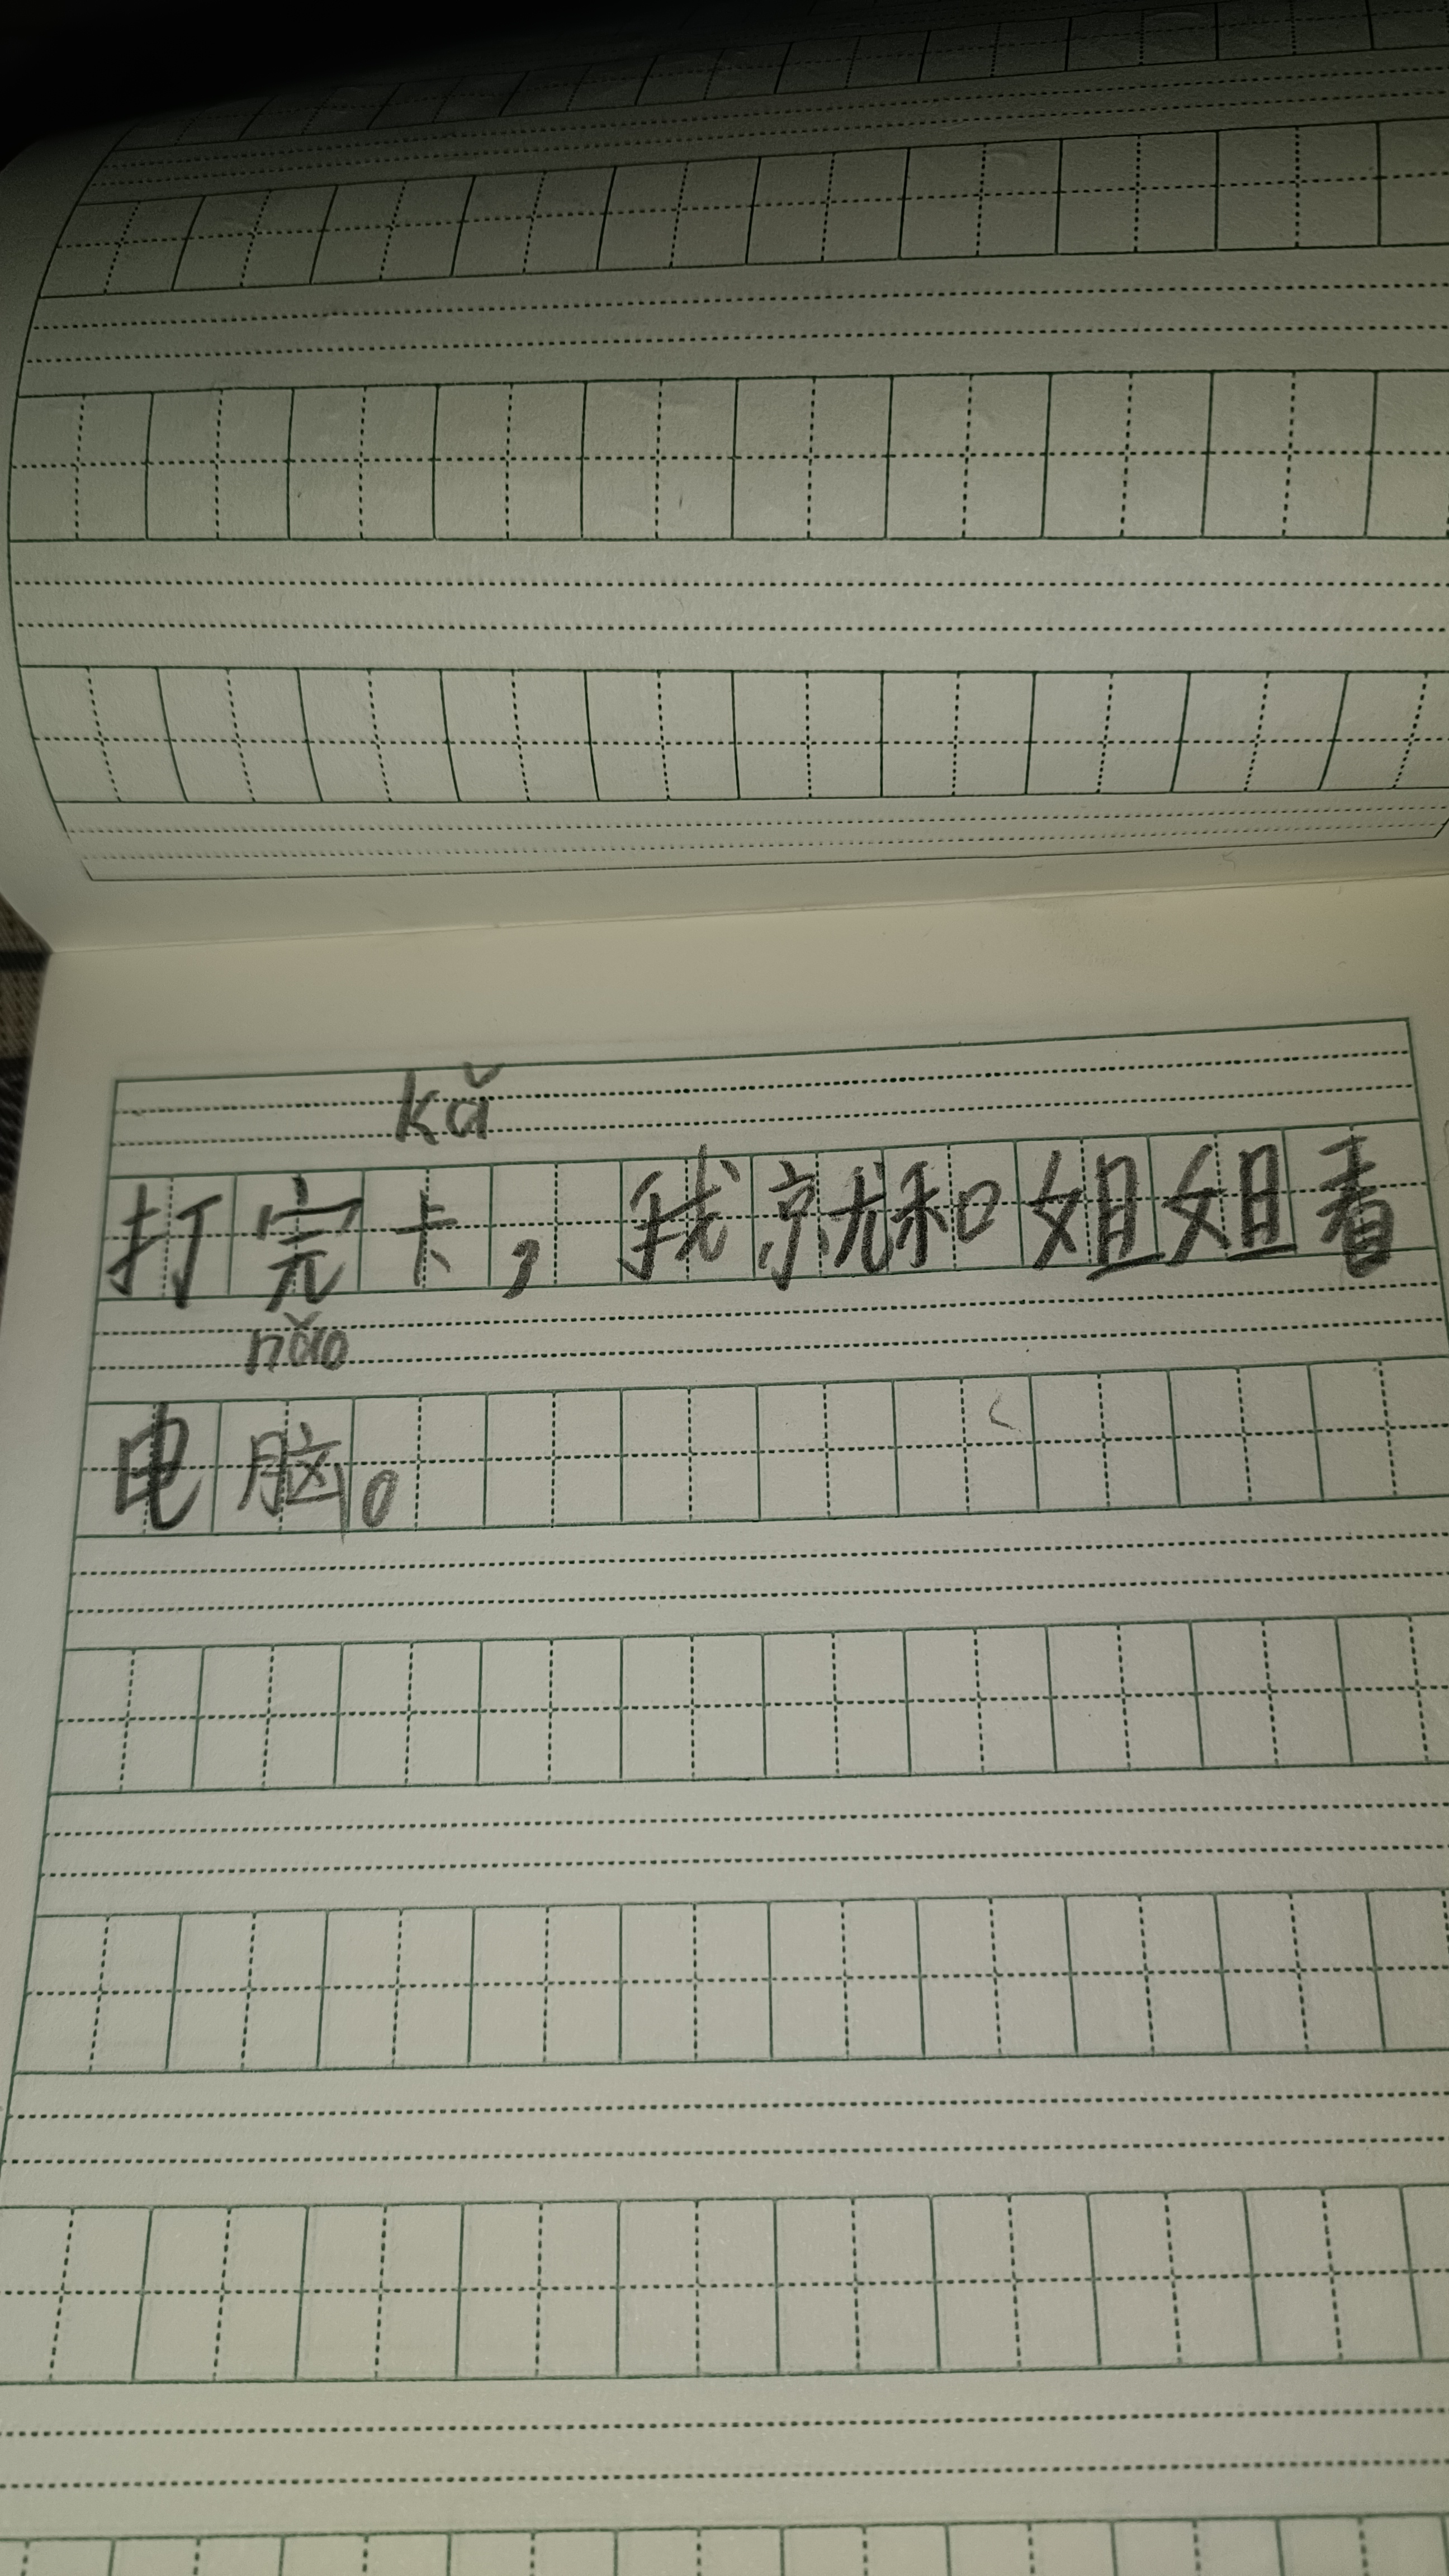 kǎ
打完卡，我就和姐姐看
nǎo
电脑。